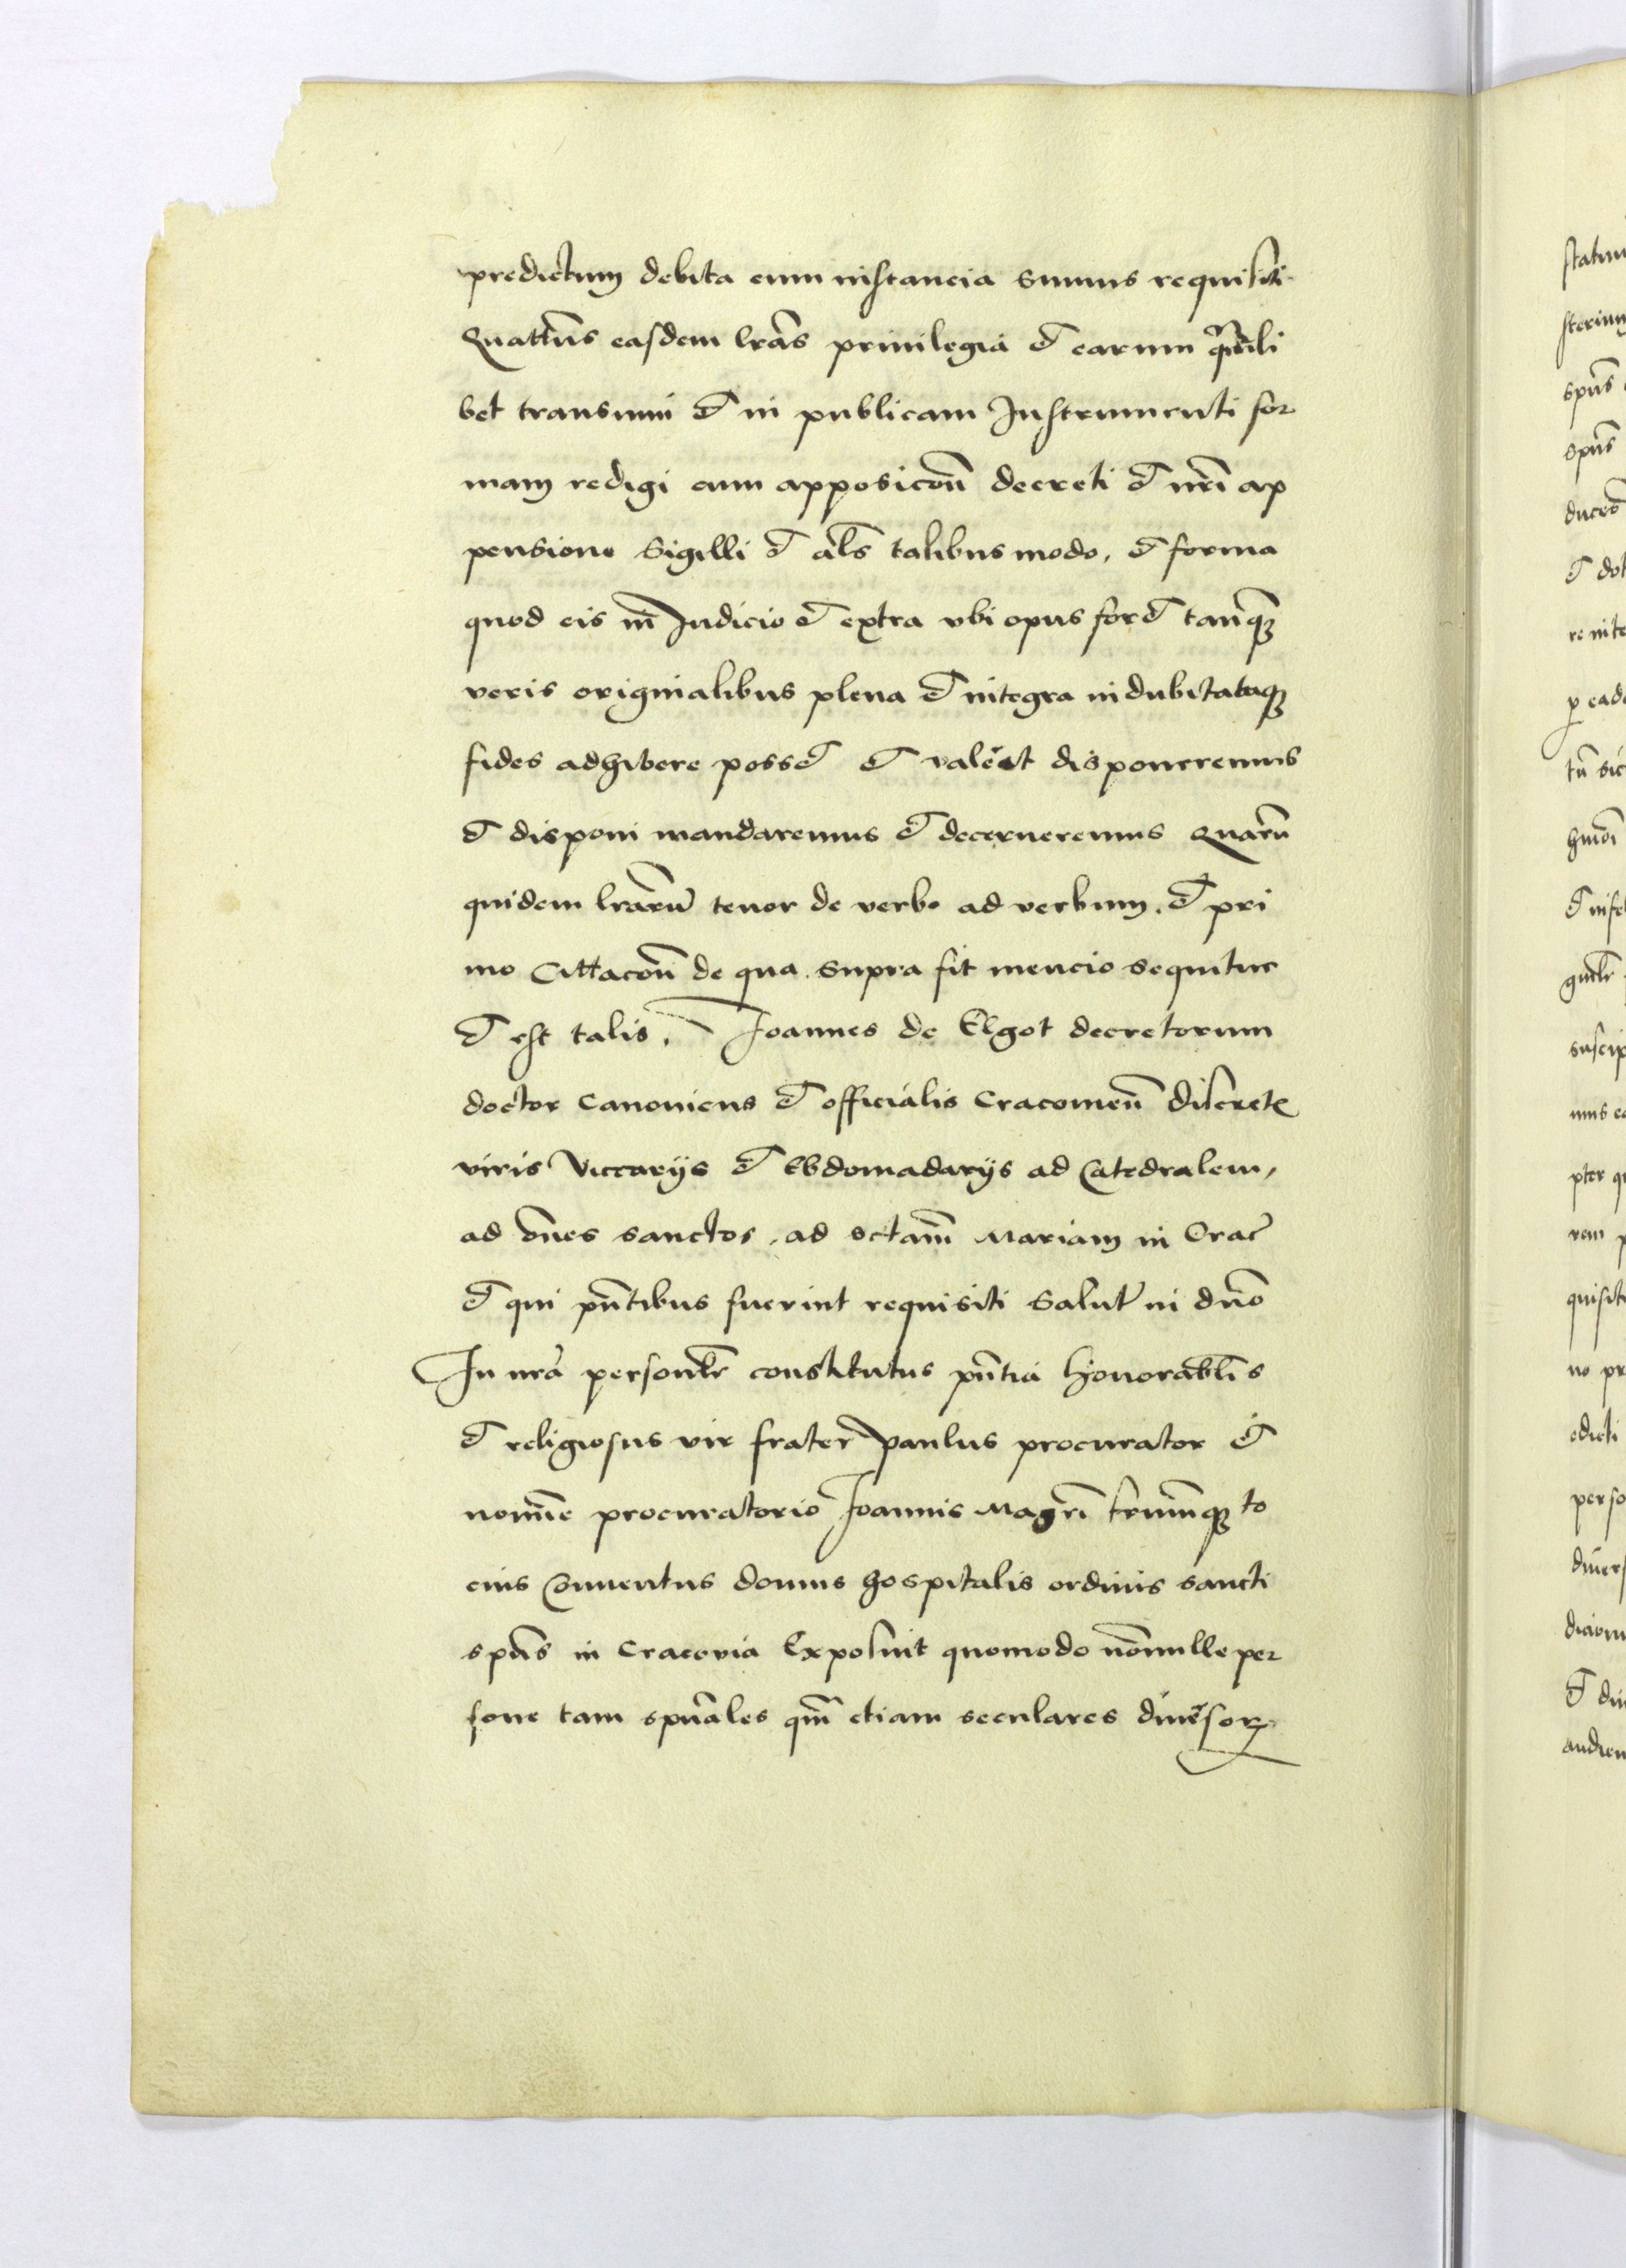 predictum debita cum instancia sumus requisiti
Quatten̄s easdem lrãs priuilegia et earum quili
bet transumi et in publicam Instrumenti for
mam redigi cum apposicoñ decreti et nr̄i ap
pensione Sigilli et al̄s talibus modo, et forma
quod eis in Iudicio et extra vbi opus foret tanq̄
veris originalibus plena et integra indubitataq̄
fides adhibere posset et valeat disponeremus
et disponi mandaremus et decerneremus Quarū
quidem lrarū tenor de verbo ad verbum. et pri
mo Cittacoñ de qua supra fit mencio sequitur
et est talis. Joannes de Elgot decretorum
doctor Canonicus et officialis Cracouieñ discrete
viris Viccarijs et Ebdomadarijs ad Catedralem,
ad om̄es sanctos, ad sctam̄ Mariam in Crac̄
et qui pn̄tibus fuerint requisiti Salut̄ in dn̄o
In nrã personl̄r constitutus pn̄tia Honorabl̄is
et religiosus vir frater paulus procurator et
nomīe procuratorio Joannis Magr̄i fr̄umq̄ to
cius Conuentus domus hospitalis ordinis sancti
spūs in Cracovia Exposuit quomodo nōnulle per
sone tam spūales qm̄ etiam seculares diuersorꝝ
statum
sterium
spūs
spūs
duces
et dot
re inte
p ead
tū sic
hmōi
suscip
mus ea
pter q
rem p
quisit
no pr
edicti
perso
diuers
et diu
audien